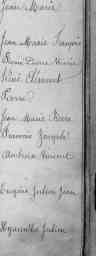 Jean Marie
Jean Marie François
Pierre Marie
René Clément
Pierre
Jean Marie Pierre
François Joseph
Ambroise Vincent
Eugène Julien Jean
Hyacinthe Julien